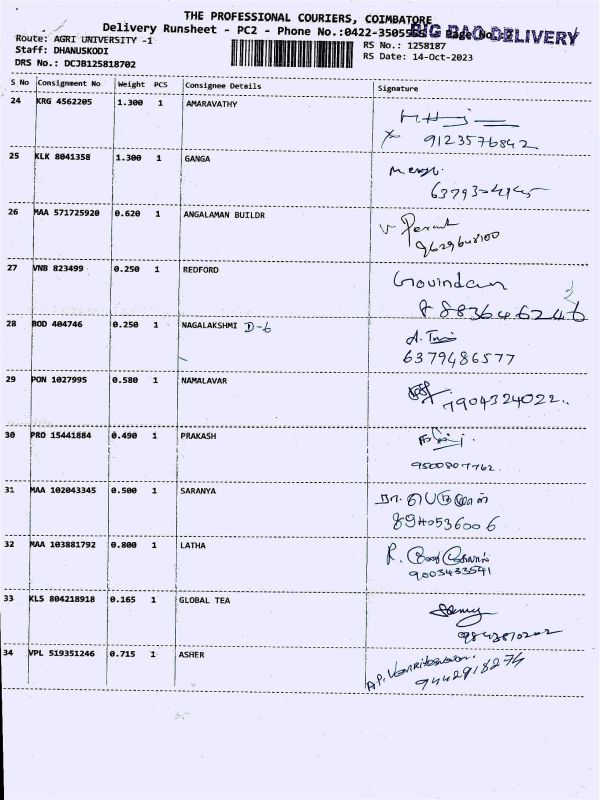 THE PROFESSIONAL COURIERS, COIMBATORE
Delivery Runsheet - PC2 - Phone No.:0422-35055 Page No. BIG BAG DELIVERY
Route: AGRI UNIVERSITY -1 RS No.: 1258187
Staff: DHANUSKODI RS Date: 14-Oct-2023
DRS No.: DCJB125818702
S No Consignment No Weight PCS Consignee Details Signature
24 KRG 4562205 1.300 1 AMARAVATHY
9123576842
25 KLK 8041358 1.300 1 GANGA
26 MAA 571725920 0.620 1 ANGALAMAN BUILDR
9629648100
27 VNB 823499 0.250 1 REDFORD Govindan
8883646246
28 BOD 404746 0.250 1 NAGALAKSHMI D-6
6379486577
29 PON 1027995 0.580 1 NAMALAVAR
7904324022..
30 PRO 15441884 0.490 1 PRAKASH
9500807762.
31 MAA 102043345 0.500 1 SARANYA
8940536006
32 MAA 103881792 0.800 1 LATHA R.
9003433541
33 KLS 804218918 0.165 1 GLOBAL TEA
34 VPL 519351246 0.715 1 ASHER
9442918274